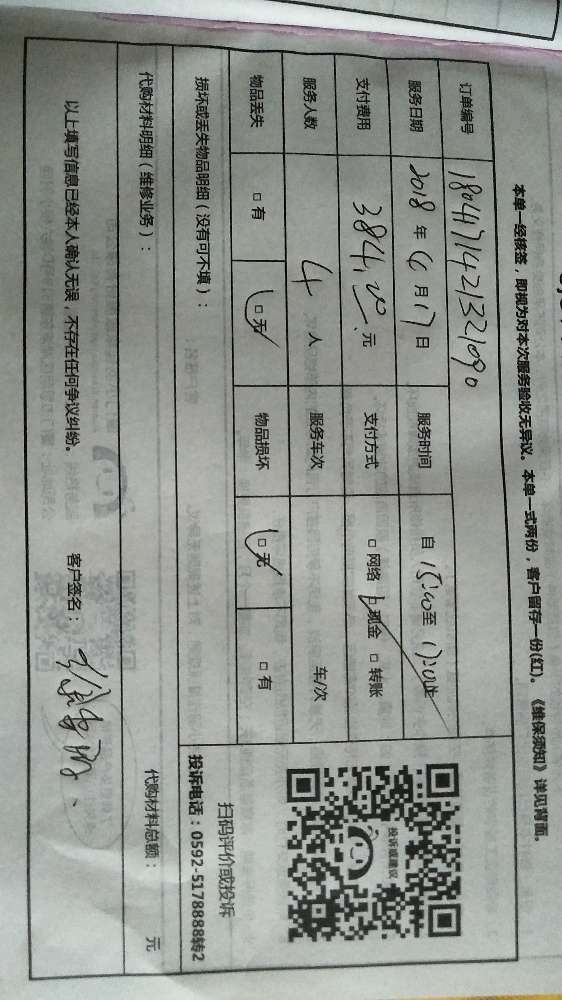 本单一经核签，即视为对本次服务验收无异议。本单一式两份，客户留存一份(红)。《维保须知》详见背面。
订单编号 1804171421321090
服务日期 2018 年 4 月 17 日 服务时间 自 15:00 至 17:00 止
支付费用 384.00 元 支付方式 □ 网络 □ 现金 □ 转账
服务人数 4 人 服务车次 车/次
物品丢失 □ 有 □ 无 物品损坏 □ 无 □ 有
投诉或建议
扫码评价或投诉
投诉电话：0592-5178888转2
损坏或丢失物品明细（没有可不填）：
代购材料明细（维修业务）： 代购材料总额： 元
以上填写信息已经本人确认无误，不存在任何争议纠纷。 客户签名：